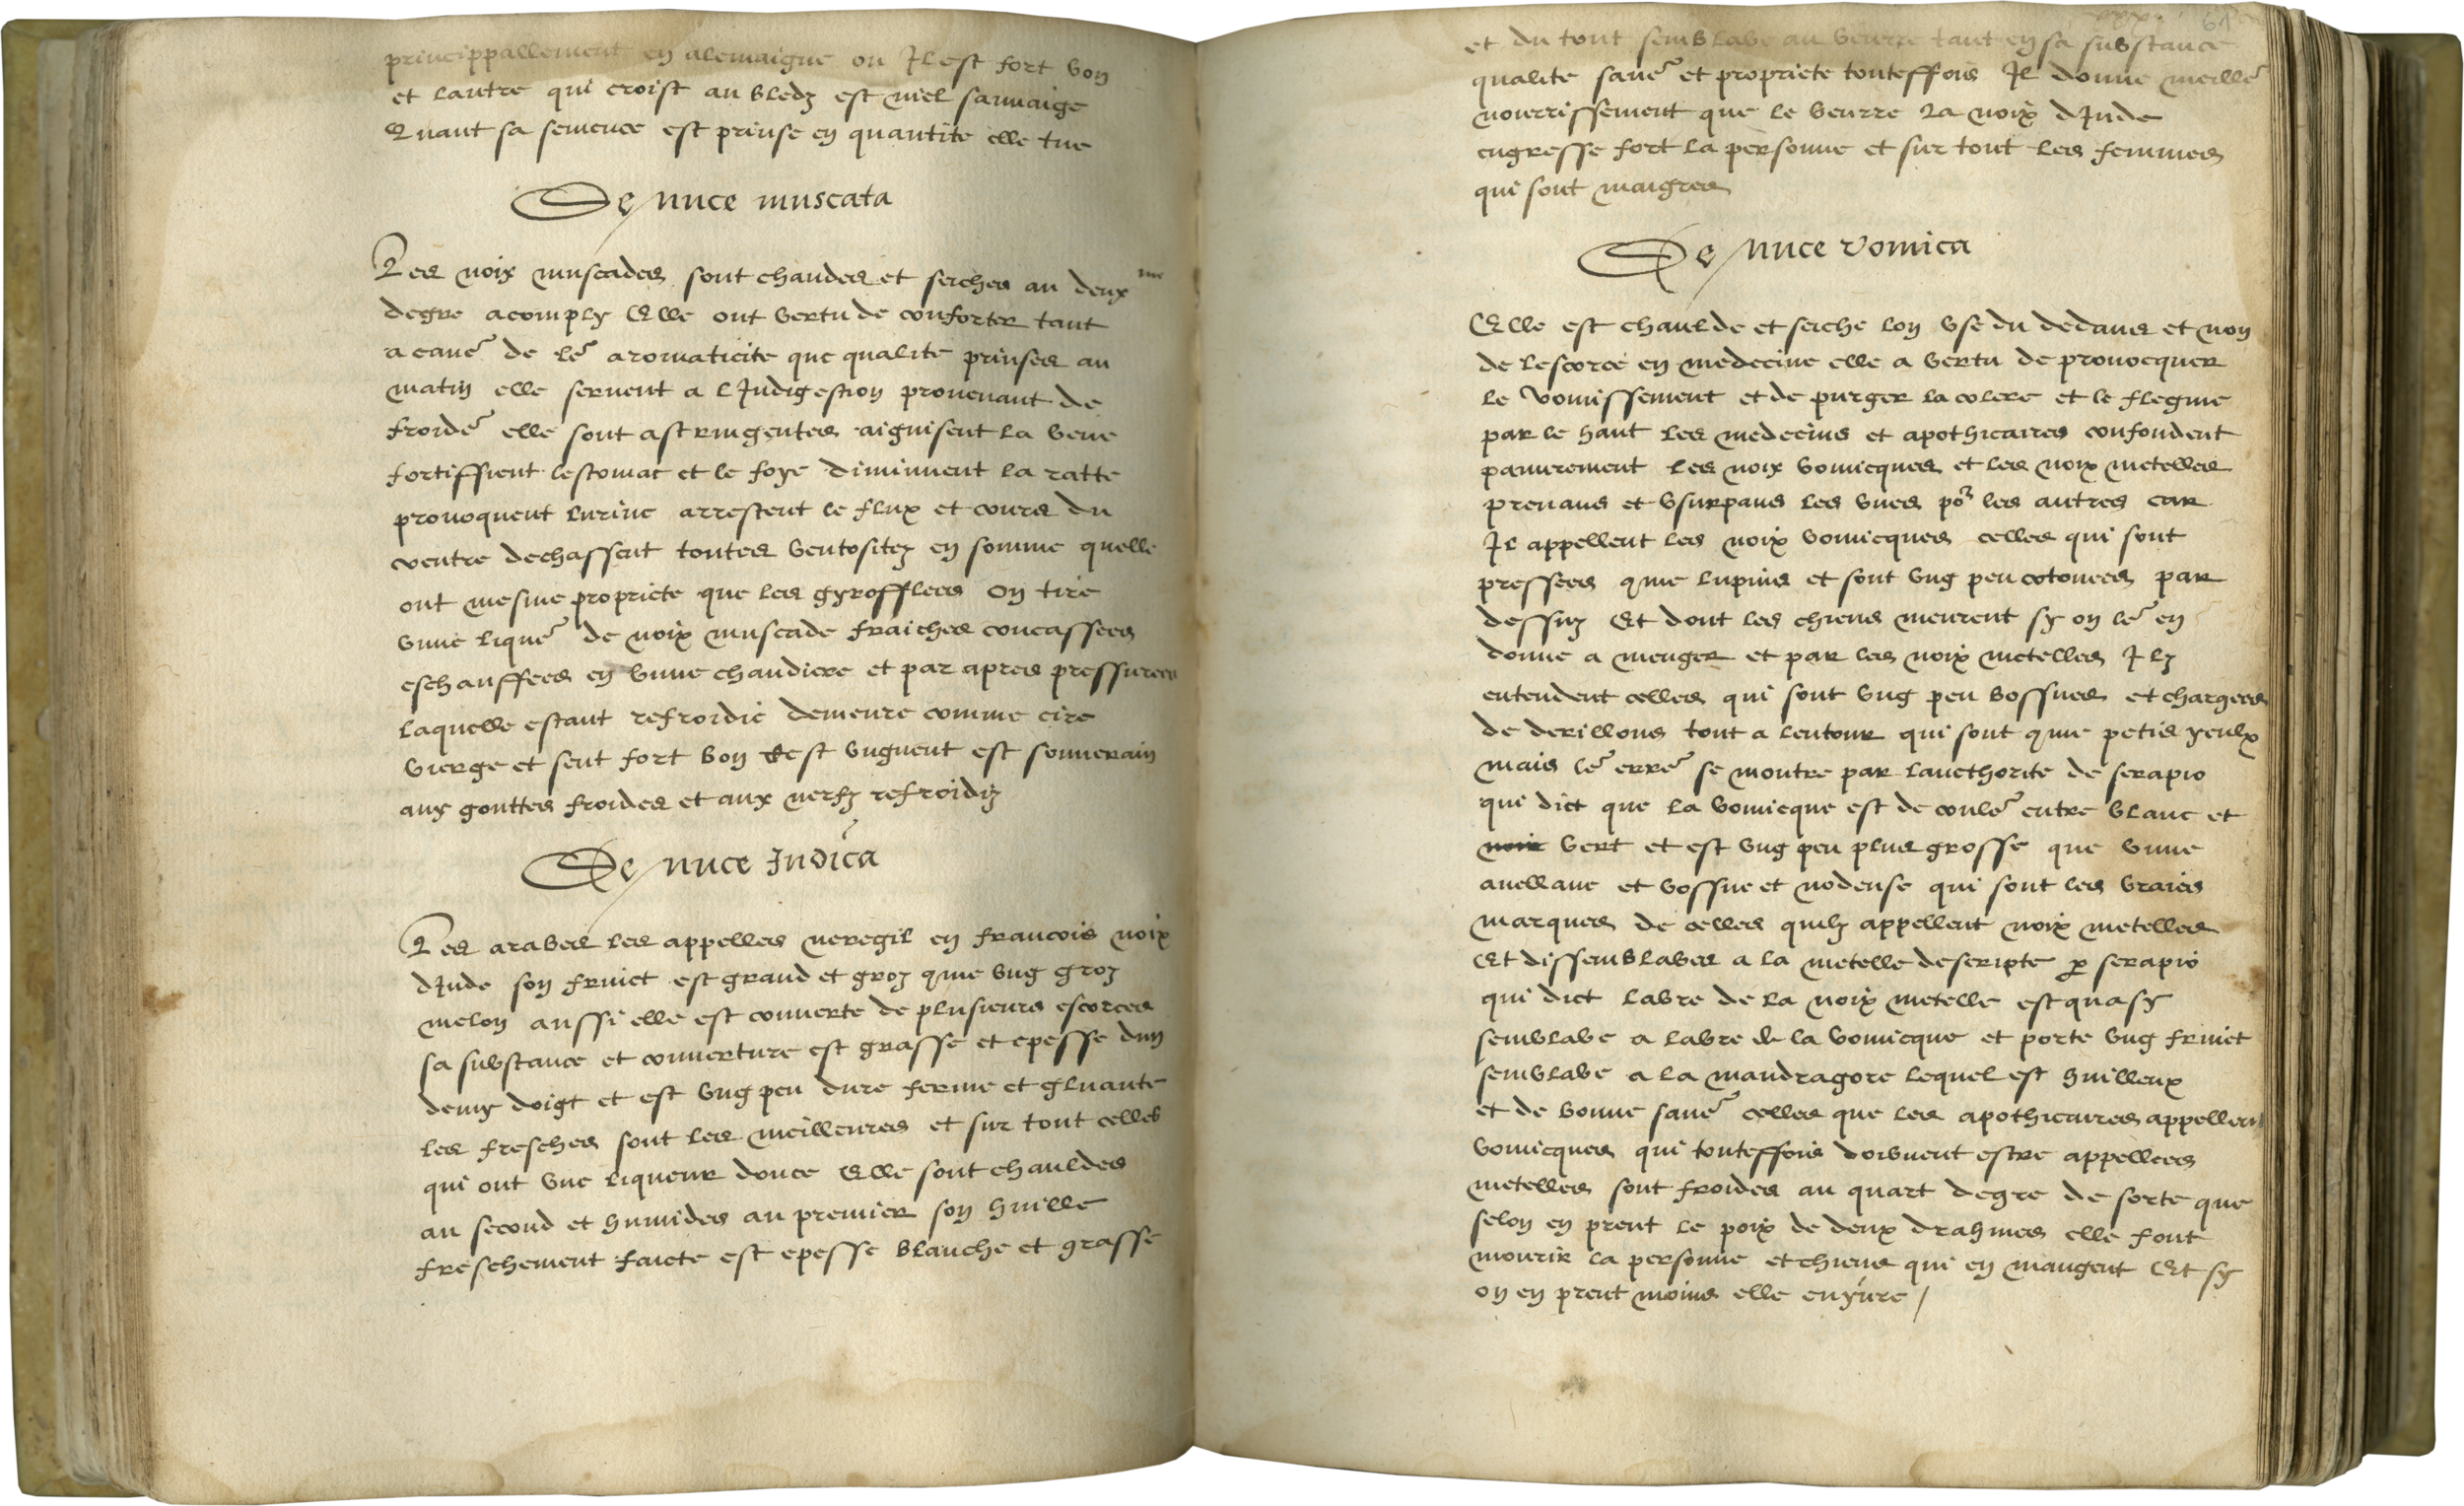 princippallement en alemaigne ou Il est fort bon
et lautre qui croist au bledz est niel sauuaige
Quant sa semence est prinse en quantite elle tue
De nuce muscata
Les noix muscades sont chaudes et seiches au deux me
degre acomply Elle ont vertu de conforter tant
a cause de le͛ aromaticite que qualite prinses au
matin elle seruent a lIndigestion prouenant de
froide͛ elle sont astringentes aiguisent la veue
fortiffient lestomac et le foye diminuent la ratte
prouoquent lurine arrestent le flux et cours du
ventre dechassent toutes ventositez en somme quelle
ont mesme propriete que les gyrofflees On tire
vune lique͛ de noix muscade fraiches concassees
eschauffees en vune chaudiere et par apres pressurees
laquelle estant refroidie demeure comme cire
vierge et sent fort bon Cest vnguent est souuerain
aux gouttes froides et aux nerfz refroidiz
De nuce Indica
Les arabes les appelles neregil en francois noix
dInde son fruict est grand et groz qme vng groz
melon aussi elle est couuerte de plusieurs escorces
sa substance et couuerture est grasse et epesse dun
demy doigt et est vng peu dure ferme et gluante
les fresches sont les meilleures et sur tout celles
qui ont vne liqueur douce Elle sont chauldes
au second et humides au premier son huille
freschement faicte est epesse blanche et grasse
61
et du tout semblabe au beurre tant en sa substance
qualite saue͛ et propriete touteffois Il donne meille͛
nourrissement que le beurre La noix dInde
engresse fort la personne et sur tout les femmes
qui sont maigres
De nuce vomica
Elle est chaulde et seiche lon vse du dedans et non
de lescorce en medecine elle a vertu de prouocquer
le vomissement et de purger la colere et le flegme
par le hault les medecins et apothicaires confondent
pauurement les noix vomicques et les noix metelles
prenans et vsurpans les vnes po͛ les autres car
Il appellent les noix vomicques celles qui sont
pressees qme lupins et sont vng peu cotonees par
dessuz Et dont les chiens meurent sy on le͛ en
donne a menger et par les noix metelles Ilz
entendent celles qui sont vng peu bossues et chargees
de derillons tout a lentour qui sont qme petis yeulx
mais le͛ erre͛ se montre par laucthorite de serapio
qui dict que la vomicque est de coule͛ entre blanc et
noir vert et est vng peu plus grosse que vune
auellane et bossue et nodeuse qui sont les vraies
marques de celles quilz appellent noix metelles
Et dissemblabes a la metelle descripte p serapio
qui dict labre de la noix metelle est quasy
semblabe a labre de la vomicque et porte vng fruict
semblabe a la mandragore lequel est huilleux
et de bonne saue͛ celles que les apothicaires appellent
vomicques qui touteffois doibuent estre appellees
metelles sont froides au quart degre de sorte que
selon en prent le poix de deux drahmes elle font
mourir la personne et chiens qui en mangent Et sy
on en prent moins elle enyure /